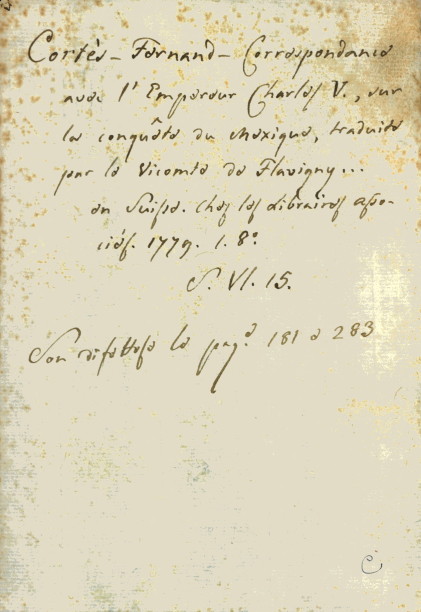 Cortès - Fernand - Correspondance
avec l'Empereur Charles V., sur
la conquête du Mexique, traduite
par le Vicomte de Flavigny...
en Suisse. Chez les Libraires asso-
ciés. 1779. 1. 8°.
S. VI. 15.
Son difettose le pag.e 181 e 283
C